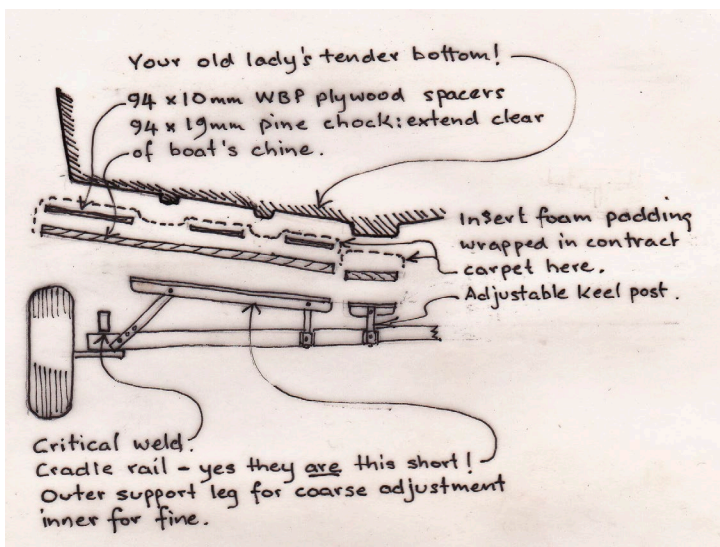 Your old lady's tender bottom!
94 x 10mm WBP plywood spacers
94 x 19mm pine chock: extend clear
of boat's chine.
Insert foam padding
wrapped in contract
carpet here.
Adjustable keel post.
Critical weld.
Cradle rail - yes they are this short!
Outer support leg for coarse adjustment
inner for fine.